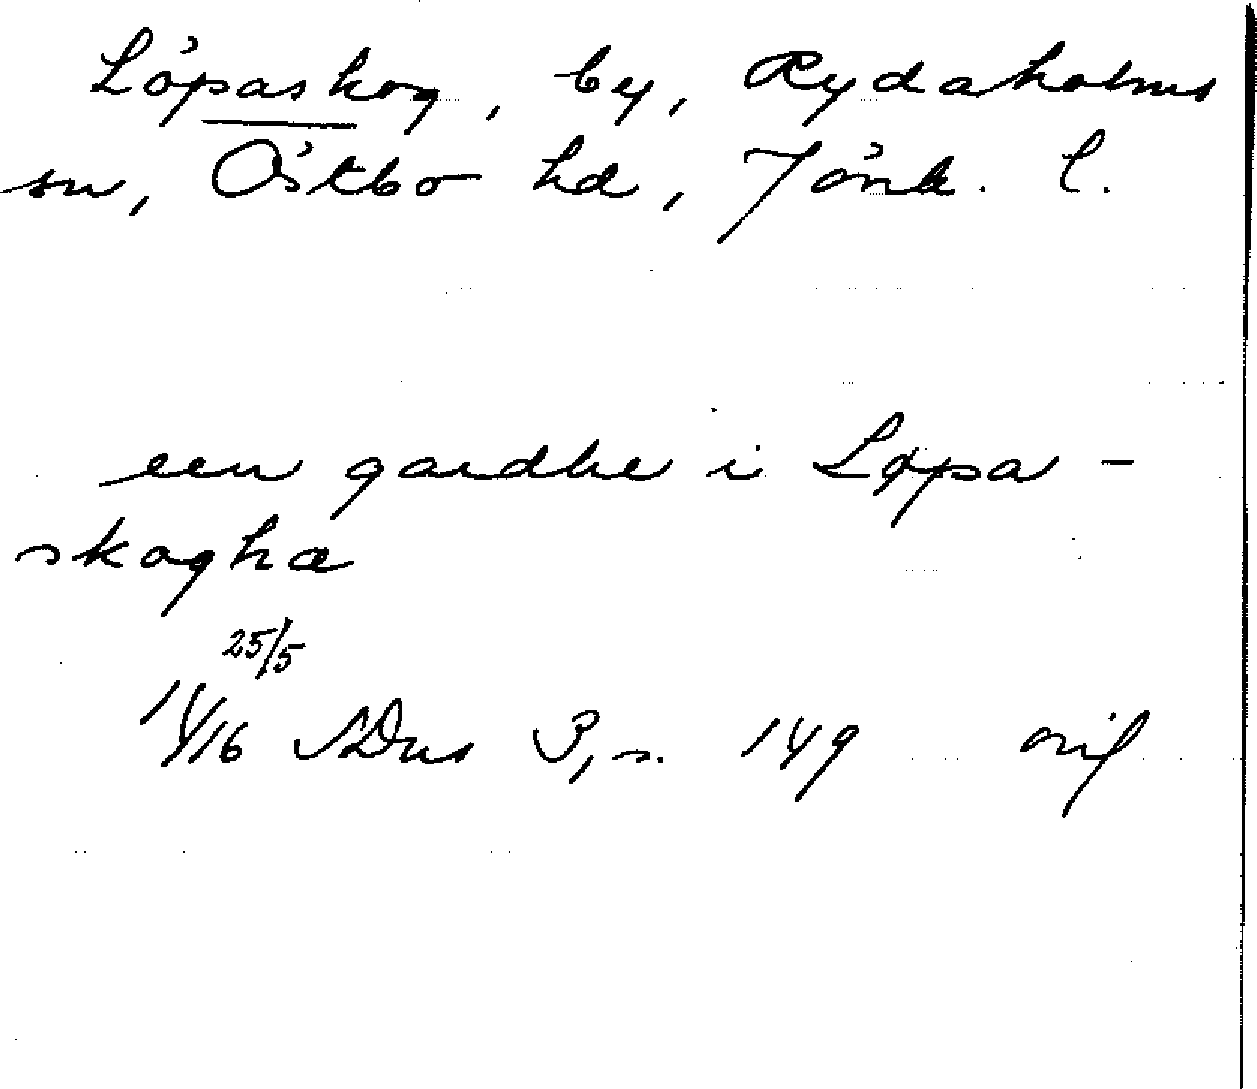 Löpaskog, by, Rydaholms
sn, Östbo hd, Jönk. l.
een gardhe i Løpa-
skoghæ
25/5
1416 SDns 3, s. 149 orig